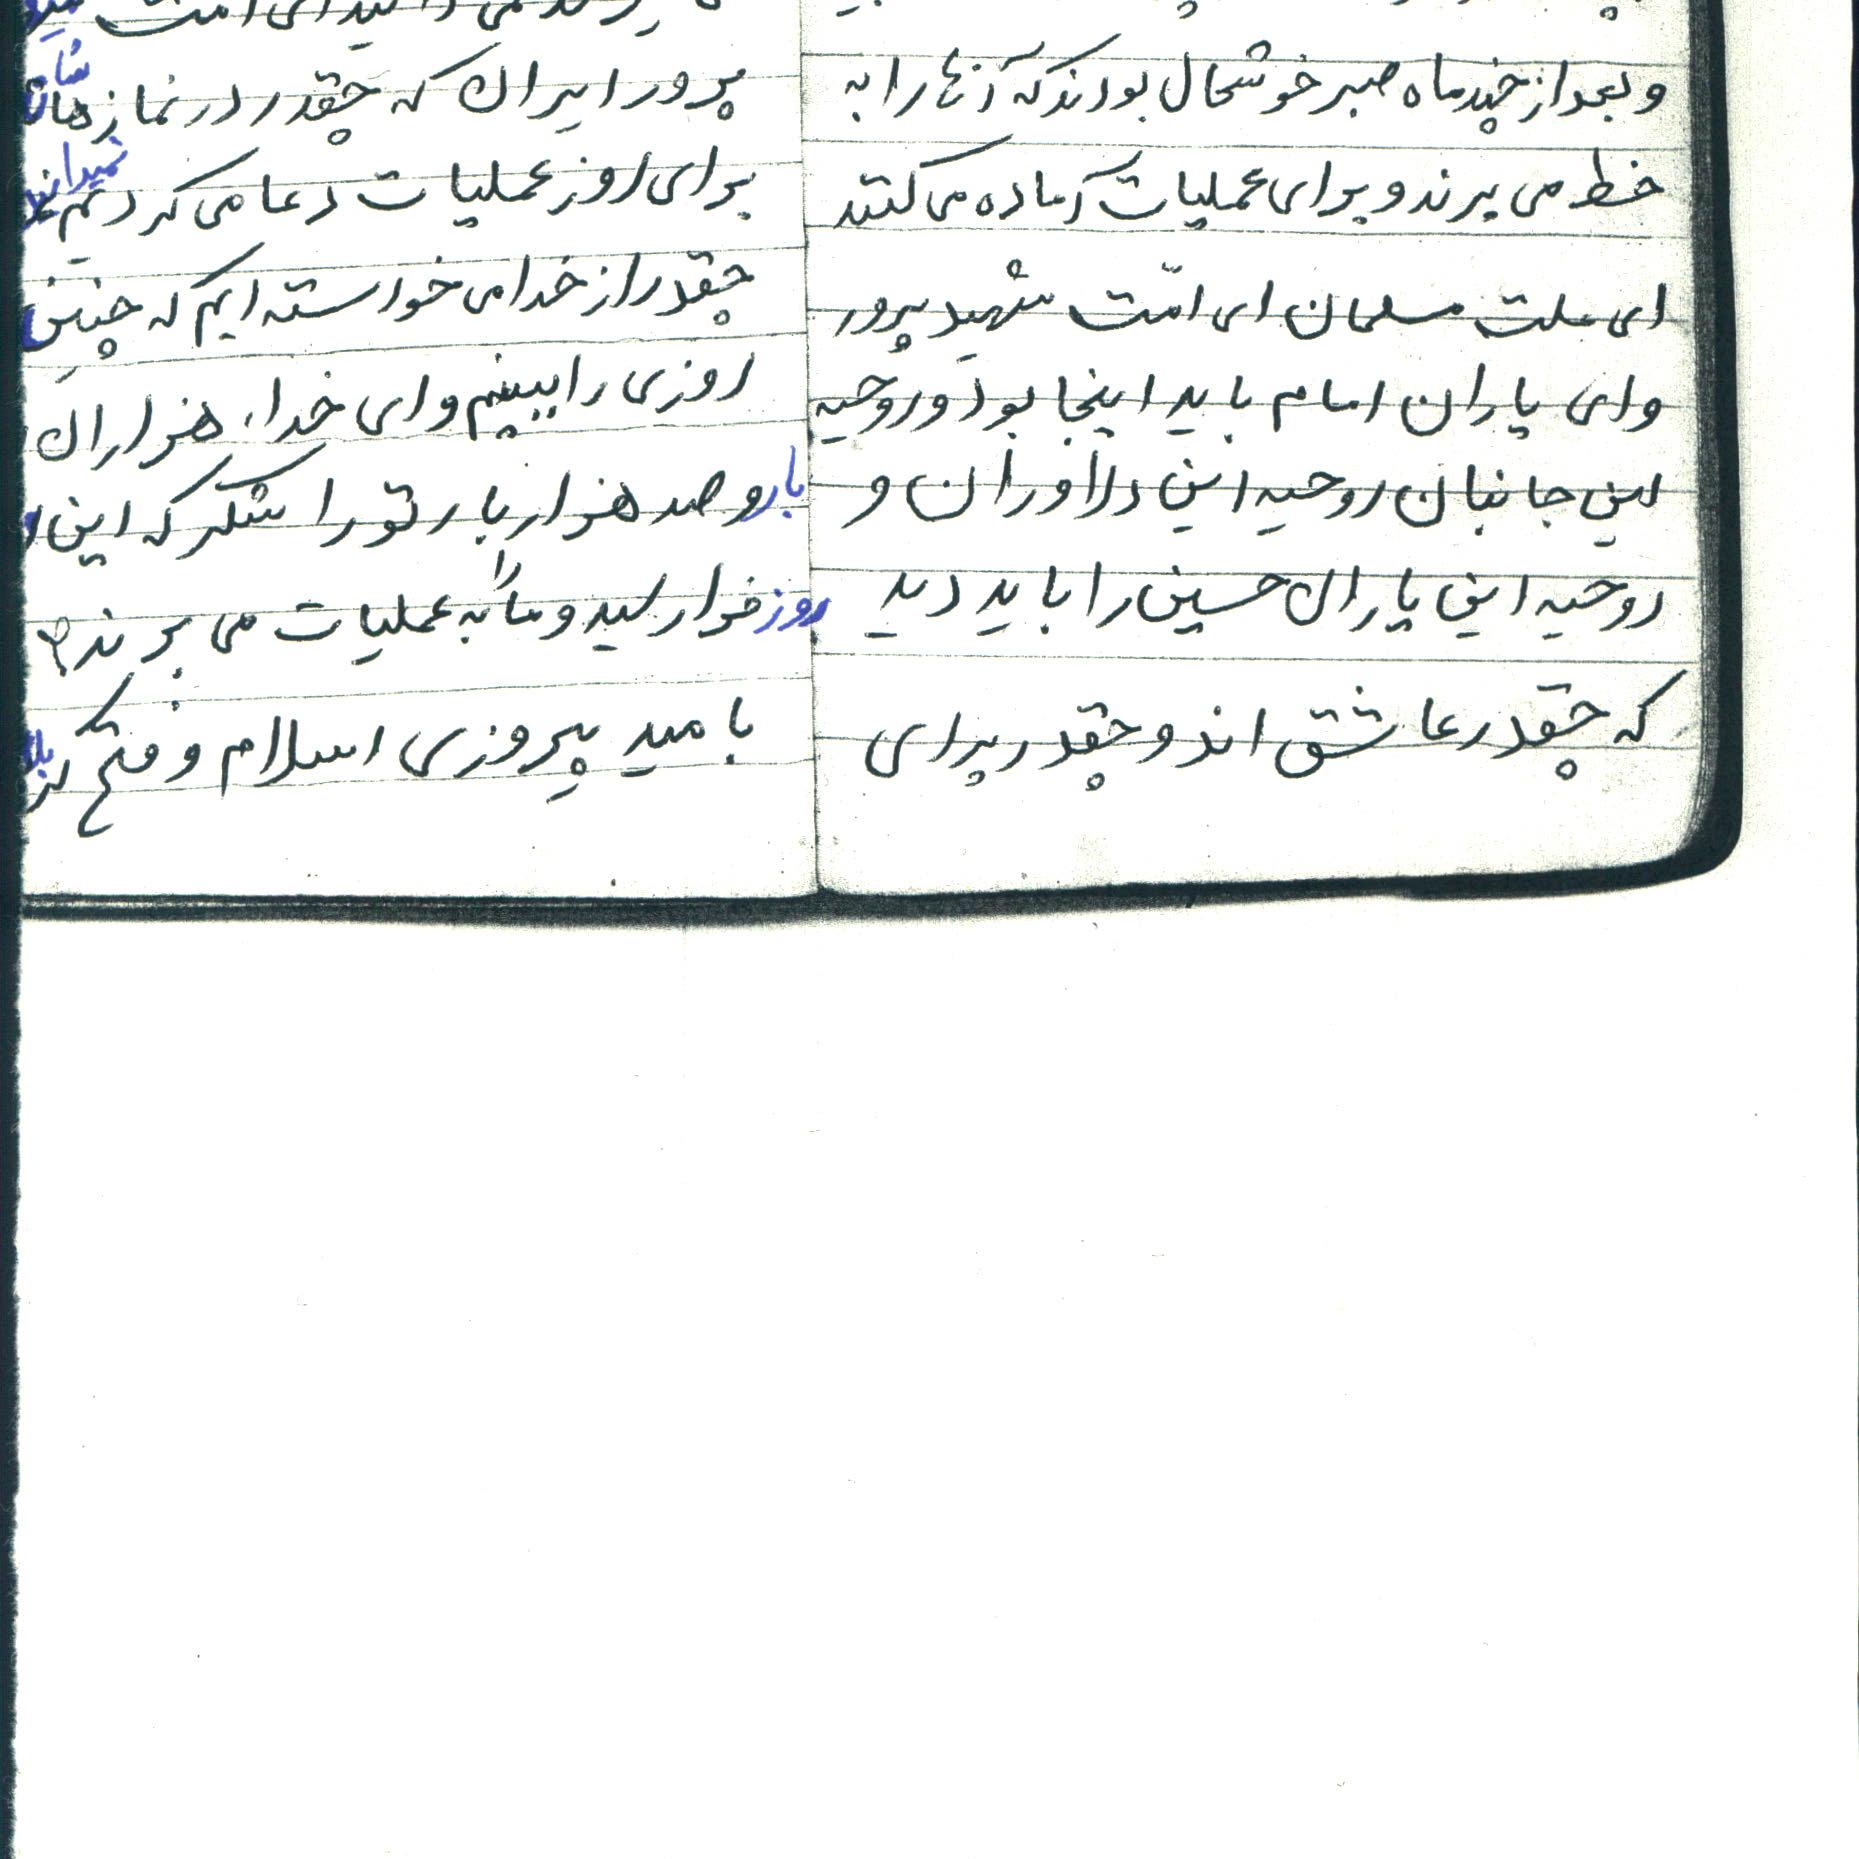 و بعد از چند ماه صبر خوشحال بودند که آنها را به
خط می برند و برای عملیات آماده می کنند
ای ملت مسلمان ای امّت شهید پرور
و ای یاران امام باید اینجا بود و روحیه
این جانبان روحیه این دلاوران و
روحیه این یاران حسین را باید دید
که چقدر عاشق اند و چقدر برای
پرور ایران که چقدر در نمازهای شان
برای روز عملیات دعا می کردیم نمیدانید
چقدر از خدا می خواسته ایم که چنین
روزی را ببینیم و ای خدا، هزاران
بار و صد هزار بار تو را شکر که این
روز فرا رسید و ما را به عملیات می برند
بامید پیروزی اسلام و فتح کربلا